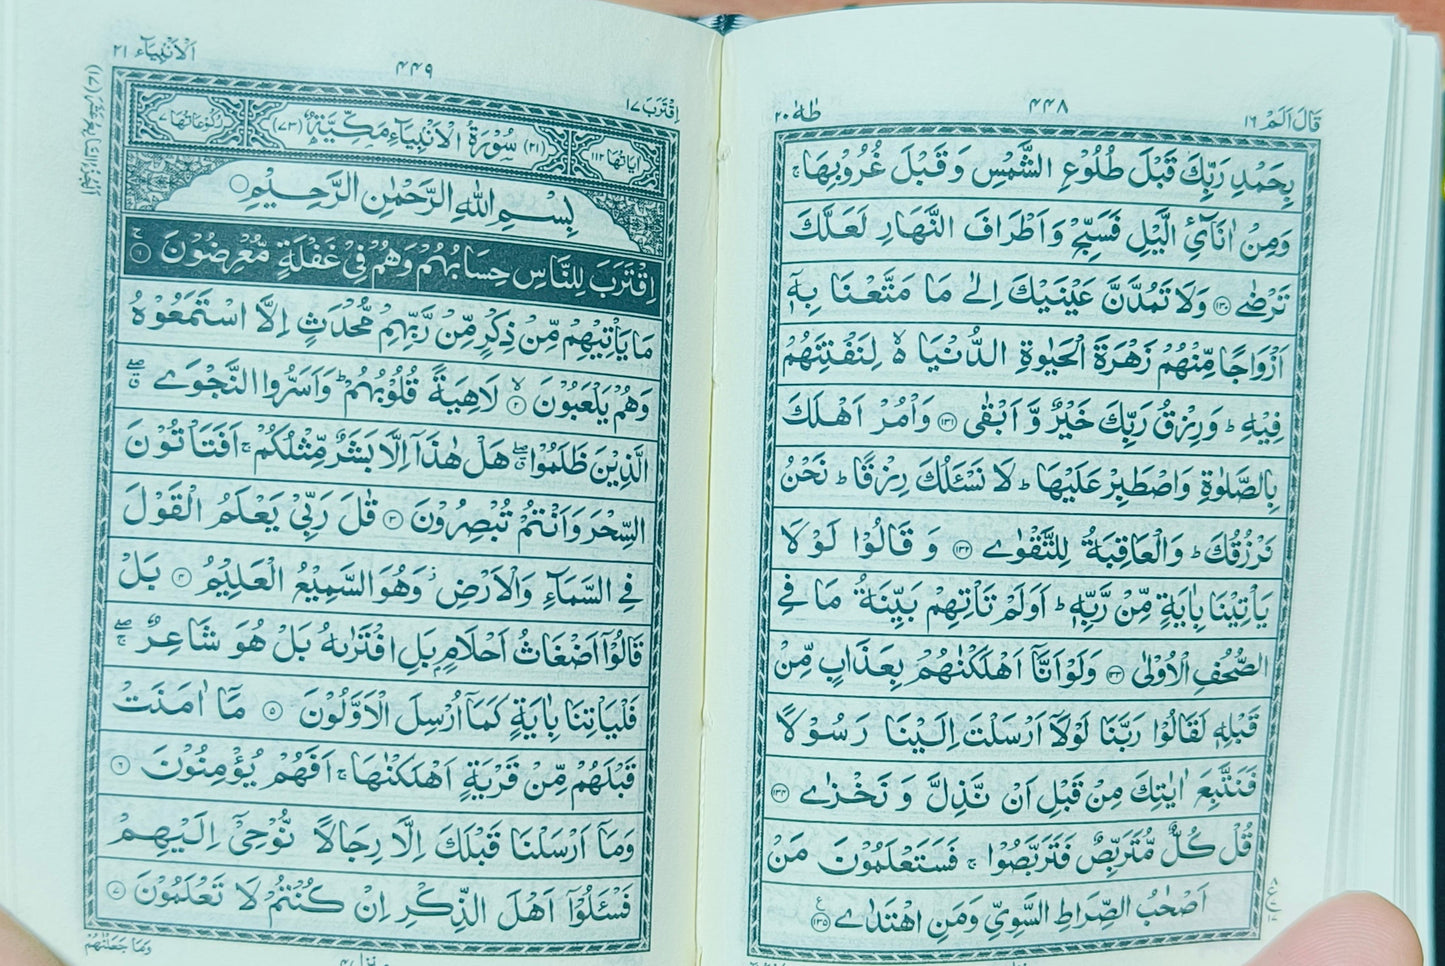 قَالَ اَلَمْ ١٦
٤٤٨
طٰهٰ ٢٠
بِحَمْدِ رَبِّكَ قَبْلَ طُلُوْعِ الشَّمْسِ وَ قَبْلَ غُرُوْبِهَا ۚ
وَمِنْ اٰنَآئِ الَّيْلِ فَسَبِّحْ وَ اَطْرَافَ النَّهَارِ لَعَلَّكَ
تَرْضٰى ﴿١٣٠﴾ وَلَا تَمُدَّنَّ عَيْنَيْكَ اِلٰى مَا مَتَّعْنَا بِهٖٓ
اَزْوَاجًا مِّنْهُمْ زَهْرَةَ الْحَيٰوةِ الدُّنْيَا ۙ لِنَفْتِنَهُمْ
فِيْهِ ؕ وَرِزْقُ رَبِّكَ خَيْرٌ وَّ اَبْقٰى ﴿١٣١﴾ وَاْمُرْ اَهْلَكَ
بِالصَّلٰوةِ وَاصْطَبِرْ عَلَيْهَا ؕ لَا نَسْـَٔلُكَ رِزْقًا ؕ نَحْنُ
نَرْزُقُكَ ؕ وَالْعَاقِبَةُ لِلتَّقْوٰى ﴿١٣٢﴾ وَ قَالُوْا لَوْ لَا
يَاْتِيْنَا بِاٰيَةٍ مِّنْ رَّبِّهٖ ؕ اَوَلَمْ تَاْتِهِمْ بَيِّنَةُ مَا فِي
الصُّحُفِ الْاُوْلٰى ﴿١٣٣﴾ وَلَوْ اَنَّآ اَهْلَكْنٰهُمْ بِعَذَابٍ مِّنْ
قَبْلِهٖ لَقَالُوْا رَبَّنَا لَوْلَآ اَرْسَلْتَ اِلَيْنَا رَسُوْلًا
فَنَتَّبِعَ اٰيٰتِكَ مِنْ قَبْلِ اَنْ نَّذِلَّ وَ نَخْزٰى ﴿١٣٤﴾
قُلْ كُلٌّ مُّتَرَبِّصٌ فَتَرَبَّصُوْا ۚ فَسَتَعْلَمُوْنَ مَنْ
اَصْحٰبُ الصِّرَاطِ السَّوِيِّ وَمَنِ اهْتَدٰى ﴿١٣٥﴾
اِقْتَرَبَ ١٧
٤٤٩
اَلْاَنْۢبِيَآء ٢١
اٰيَاتُهَا ١١٢
(٢١) سُوْرَةُ الْاَنْۢبِيَآءِ مَكِّيَّةٌ (٧٣)
رُكُوْعَاتُهَا ٧
بِسْمِ اللّٰهِ الرَّحْمٰنِ الرَّحِيْمِ
اِقْتَرَبَ لِلنَّاسِ حِسَابُهُمْ وَهُمْ فِيْ غَفْلَةٍ مُّعْرِضُوْنَ ۚ ﴿١﴾
مَا يَاْتِيْهِمْ مِّنْ ذِكْرٍ مِّنْ رَّبِّهِمْ مُّحْدَثٍ اِلَّا اسْتَمَعُوْهُ
وَهُمْ يَلْعَبُوْنَ ۙ ﴿٢﴾ لَاهِيَةً قُلُوْبُهُمْ ؕ وَاَسَرُّوا النَّجْوَى ۖق
الَّذِيْنَ ظَلَمُوْا ۖق هَلْ هٰذَآ اِلَّا بَشَرٌ مِّثْلُكُمْ ۚ اَفَتَاْتُوْنَ
السِّحْرَ وَاَنْتُمْ تُبْصِرُوْنَ ﴿٣﴾ قٰلَ رَبِّيْ يَعْلَمُ الْقَوْلَ
فِي السَّمَآءِ وَالْاَرْضِ ؗ وَهُوَ السَّمِيْعُ الْعَلِيْمُ ﴿٤﴾ بَلْ
قَالُوْٓا اَضْغَاثُ اَحْلَامٍۭ بَلِ افْتَرٰىهُ بَلْ هُوَ شَاعِرٌ ۖۚ
فَلْيَاْتِنَا بِاٰيَةٍ كَمَآ اُرْسِلَ الْاَوَّلُوْنَ ﴿٥﴾ مَآ اٰمَنَتْ
قَبْلَهُمْ مِّنْ قَرْيَةٍ اَهْلَكْنٰهَا ۚ اَفَهُمْ يُؤْمِنُوْنَ ﴿٦﴾
وَمَآ اَرْسَلْنَا قَبْلَكَ اِلَّا رِجَالًا نُّوْحِيْٓ اِلَيْهِمْ
فَسْـَٔلُوْٓا اَهْلَ الذِّكْرِ اِنْ كُنْتُمْ لَا تَعْلَمُوْنَ ﴿٧﴾
وَمَا جَعَلْنٰهُمْ